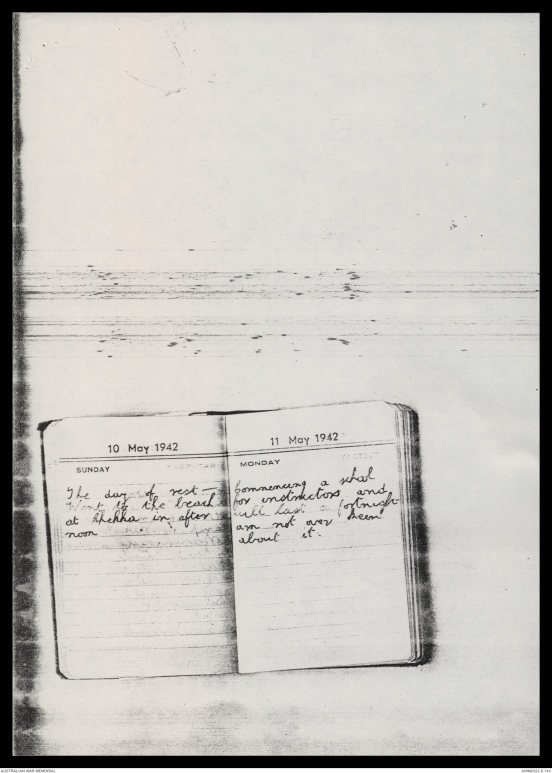 10 May 1942
SUNDAY
The day of rest —
Went to the beach
at Chekka in after
noon
11 May 1942
MONDAY
Commencing a school
for instructors and
will last a fortnight
am not over keen
about it.
AUSTRALIAN WAR MEMORIAL